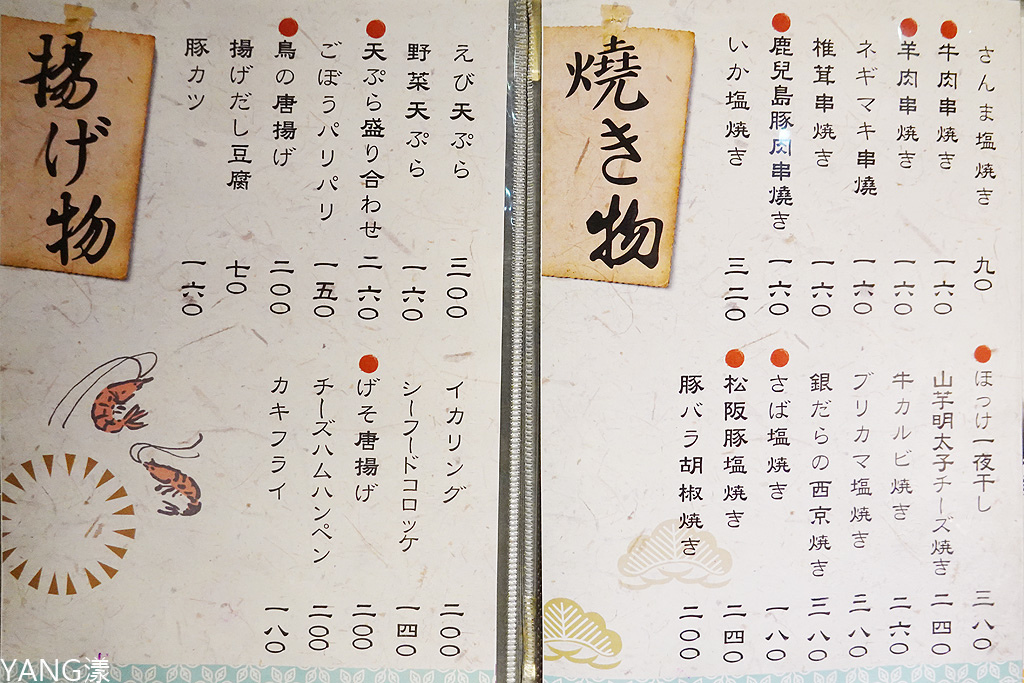 燒き物
さんま塩焼き 九〇
牛肉串焼き 一六〇
羊肉串焼き 一六〇
ネギマキ串燒 一六〇
椎茸串焼き 一六〇
鹿兒島豚肉串燒き 一六〇
いか塩焼き 三二〇
ほっけ一夜干し 三八〇
山芋明太子チーズ焼き 二四〇
牛カルビ焼き 二六〇
ブリカマ塩焼き 三八〇
銀だらの西京焼き 三八〇
さば塩焼き 一八〇
松阪豚塩焼き 二四〇
豚バラ胡椒焼き 二〇〇
揚げ物
えび天ぷら 三〇〇
野菜天ぷら 一六〇
天ぷら盛り合わせ 二六〇
ごぼうパリパリ 一五〇
鳥の唐揚げ 二〇〇
揚げだし豆腐 七〇
豚カツ 一六〇
イカリング 二〇〇
シーフードコロッケ 一四〇
げそ唐揚げ 二〇〇
チーズハムハンペン 二〇〇
カキフライ 一八〇
YANG漾